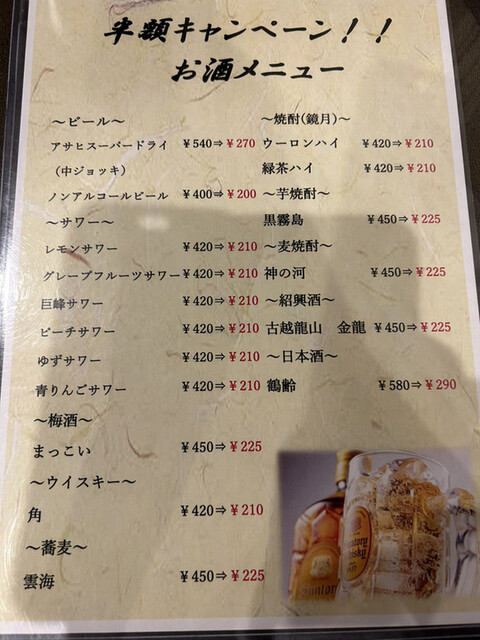 半額キャンペーン！！
お酒メニュー
～ビール～
アサヒスーパードライ ￥540⇒￥270
(中ジョッキ)
ノンアルコールビール ￥400⇒￥200
～サワー～
レモンサワー ￥420⇒￥210
グレープフルーツサワー ￥420⇒￥210
巨峰サワー ￥420⇒￥210
ピーチサワー ￥420⇒￥210
ゆずサワー ￥420⇒￥210
青りんごサワー ￥420⇒￥210
～梅酒～
まっこい ￥450⇒￥225
～ウイスキー～
角 ￥420⇒￥210
～蕎麦～
雲海 ￥450⇒￥225
～焼酎(鏡月)～
ウーロンハイ ￥420⇒￥210
緑茶ハイ ￥420⇒￥210
～芋焼酎～
黒霧島 ￥450⇒￥225
～麦焼酎～
神の河 ￥450⇒￥225
～紹興酒～
古越龍山 金龍 ￥450⇒￥225
～日本酒～
鶴齢 ￥580⇒￥290
Suntory
Whisky